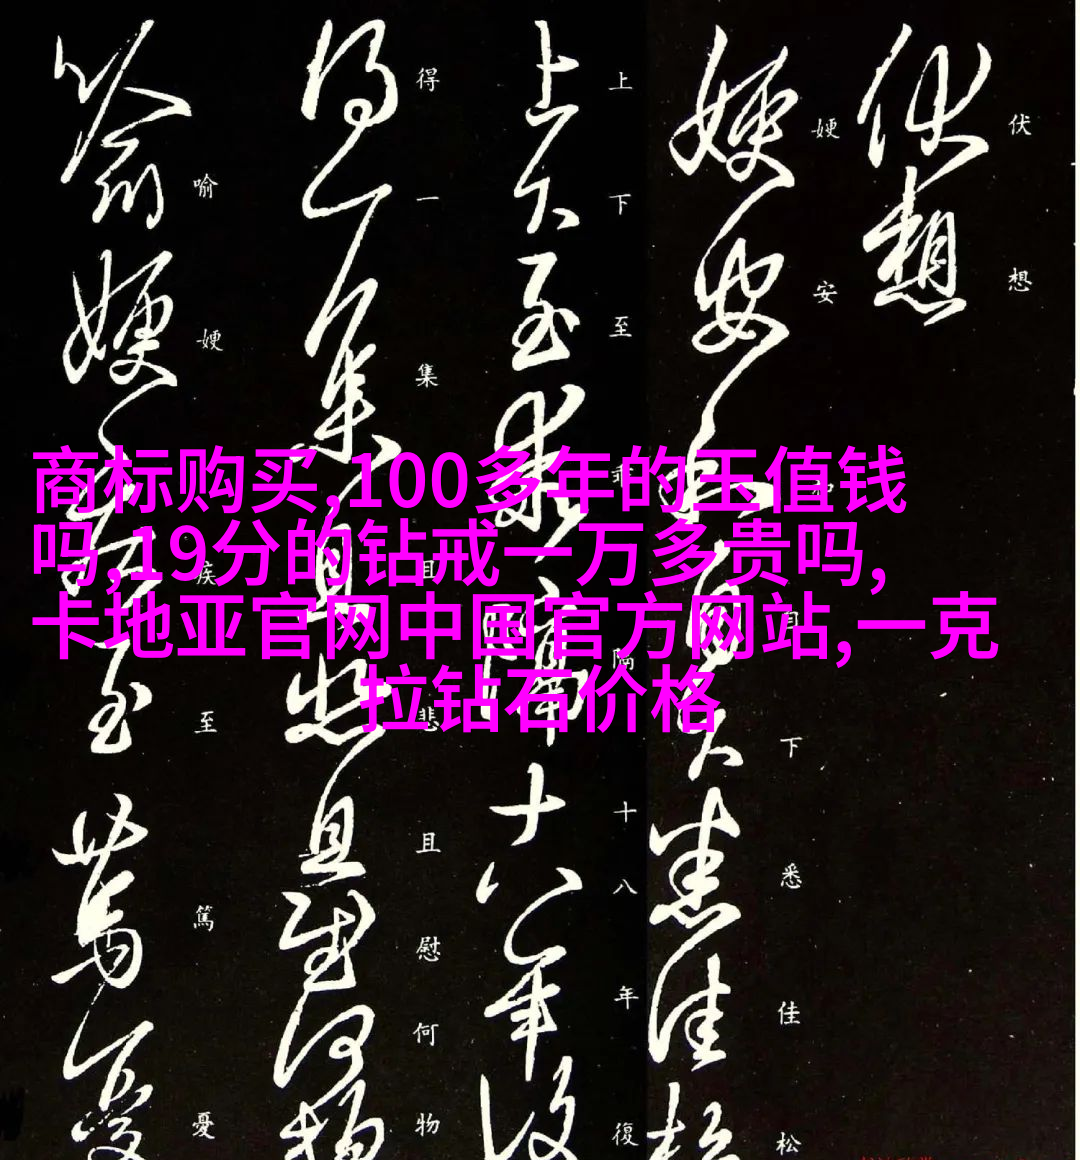 商标购买,100多年的玉值钱
吗,19分的钻戒一万多贵吗,
卡地亚官网中国官方网站,一克
拉钻石价格
伏想
㛐安和自下悉佳松
上下至乖隔十八年復
得一集且悲且慰何物
喻㛐疾至篤憂